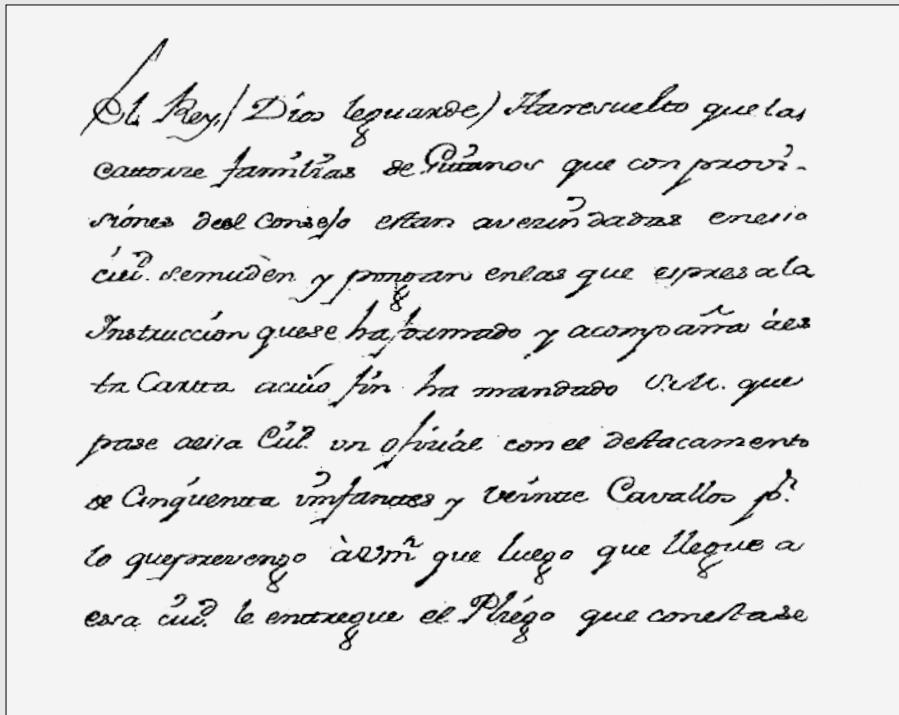 El Rey, (Dios leguarde) Haresuelto que las
catorze familias de Gitanos que con provi-
siones deel Consejo estan avezindadas enesta
ciud. semuden y pongan enlas que espresa la
Instruccion quese ha formado y acompaña àes
ta Carta acuio fin ha mandado S.M. que
pase aesa Ciud. un ofizial con el destacamento
de Cinquenta ynfantes y veinte Cavallos pr.
lo queprevengo àVm que luego que llegue a
esa ciud. le entregue el Pliego que conestase